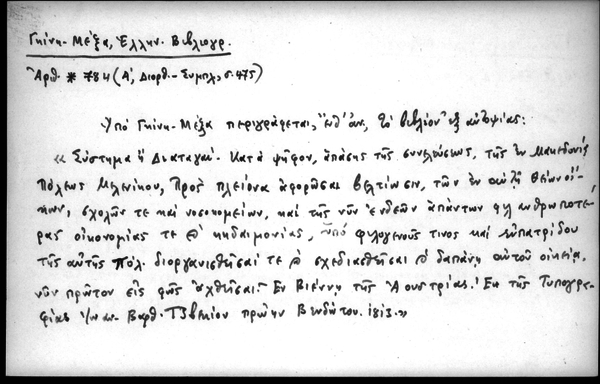 Γκίνη - Μέξα, Ἑλλην. Βιβλιογρ.
Ἀριθ. * 784 (Α', Διορθ. - Συμπλ, σ. 475)
Ὑπό Γκίνη - Μέξα περιγράφεται, τό βιβλίον ἐξ αὐτοψίας:
« Σύστημα ἤ Διαταγαί. Κατά ψῆφον, ἁπάσης τῆς συνελεύσεως, τῆς ἐν Μακεδονίᾳ
Πόλεως Μελενίκου, Πρός πλείονα ἀφορῶσαι βελτίωσιν, τῶν ἐν αὐτῇ θείων οἴ-
κων, σχολῶν τε καί νοσοκομείων, καί τῆς νῦν ἐνδεῶν ἁπάντων φιλανθρωποτέ-
ρας οἰκονομίας τε καί κηδαιμονίας, ὑπό φιλογενοῦς τινος καί εὐπατρίδου
τῆς αὐτῆς Πόλ. διοργανισθεῖσαί τε καί σχεδιασθεῖσαι καί δαπάνῃ αὐτοῦ οἰκείᾳ,
νῦν πρῶτον εἰς φῶς ἀχθεῖσαι. Ἐν Βιέννῃ τῆς Ἀουστρίας. Ἐκ τῆς Τυπογρα-
φίας Ἰωαν. Βαρθ. Τζβεκίου πρώην Βενδώτου. 1813. »